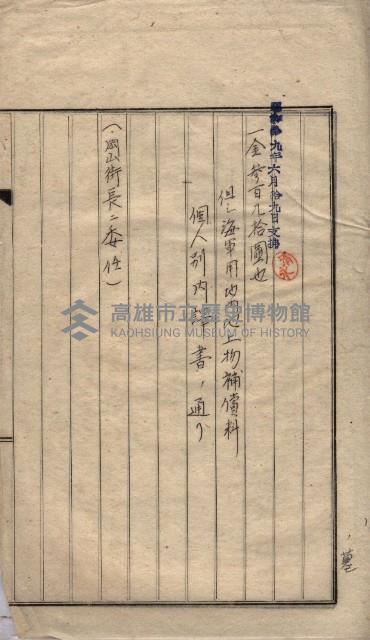 昭和拾九年六月拾九日支拂
一金參百九拾圓也
但シ海軍用地內地上物補償料
個人別內譯書ノ通リ
(岡山街長ニ委任)
高雄市立歷史博物館
KAOHSIUNG MUSEUM OF HISTORY